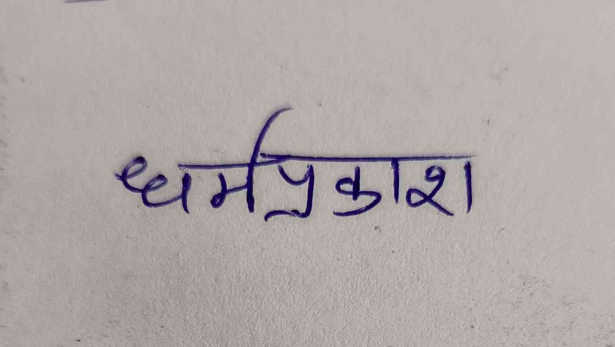 धर्मप्रकाश